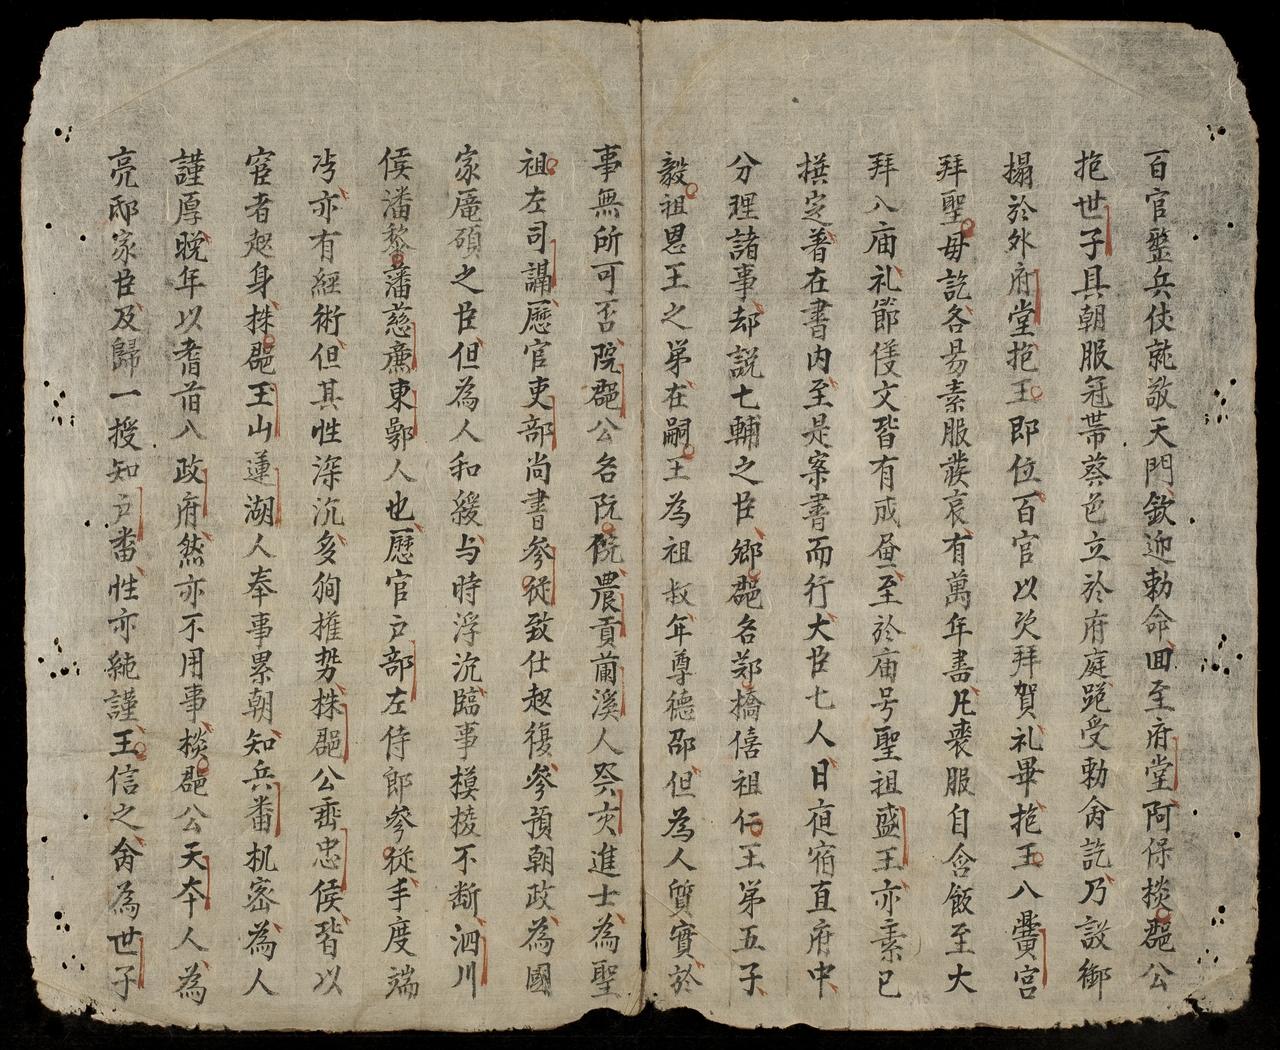 百官整兵使就敬天門欽迎勅命回至府堂阿保棪郡公
抱世子具朝服冠帶葵色立於府庭跪受勅命訖乃設御
榻於外府堂抱王即位百官以次拜賀礼畢抱王入黌宮
拜聖母訖各易素服發哀有萬年書凡喪服自含飯至大
拜入庙礼節僅文皆有成叠至於庙号聖祖盛王亦素已
撰定著在書内至是案書而行大臣七人日夜宿直府中
分理諸事却説七輔之臣鄉郡名鄚橋僖祖仁王弟五子
毅祖恩王之弟在嗣王為祖叔年尊德邵但為人質實於
事無所可否院郡公名阮俒農貢蘭溪人癸亥進士為聖
祖左司講歷官吏部尚書參從致仕起復參預朝政為國
家厖碩之臣但為人和緩与時浮沉臨事模棱不斷泗川
侯潘黎藩慈廉東鄂人也歷官户部左侍郎參從手度端
涔亦有經術但其性深沉多狥推势株郡公垂忠侯皆以
宦者起身株郡玉山蓮湖人奉事累朝知兵番机宻為人
謹厚晚年以耆酋入政府然亦不用事棪郡公天本人為
亮邸家臣及歸一授知户番性亦純謹王信之命為世子